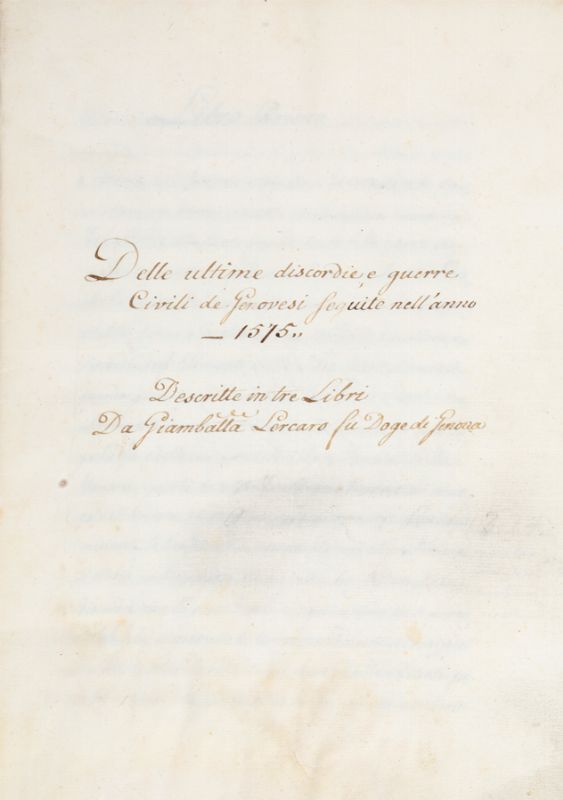 Delle ultime discordie, e guerre
Civili de Genovesi seguite nell'anno
— 1575.,
Descritte in tre Libri
Da Giambatta Lercaro fu Doge di Genova